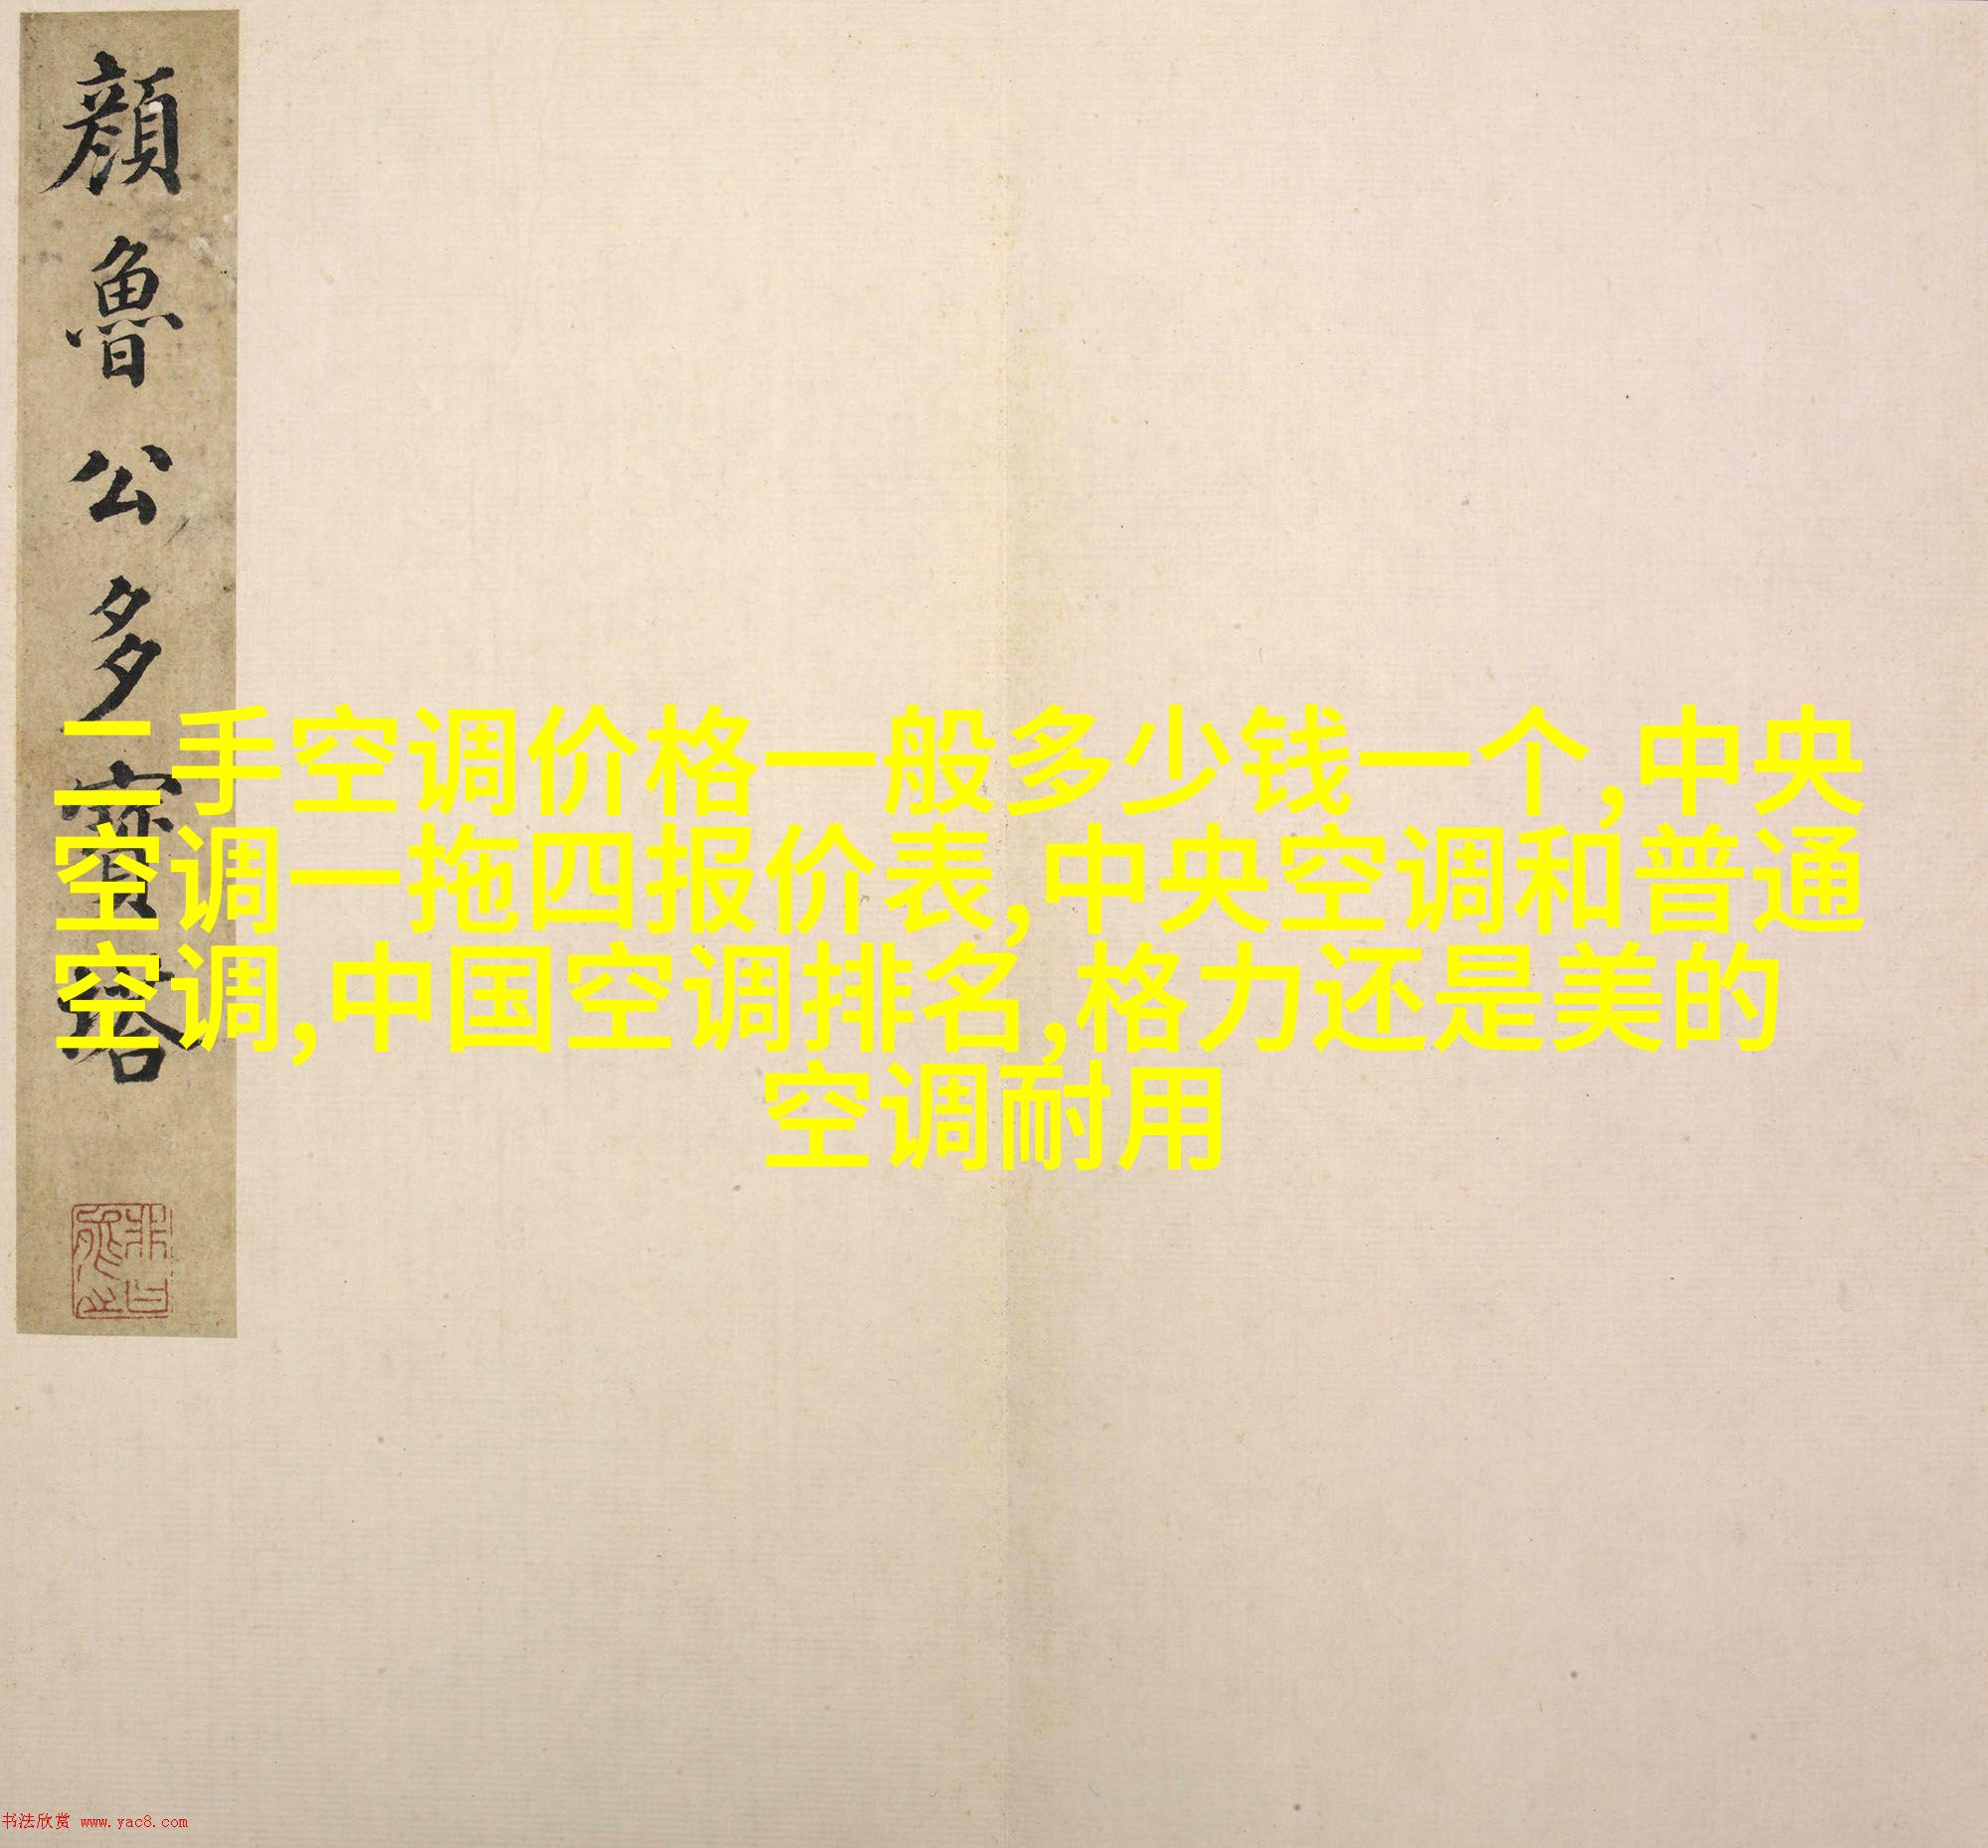 顔魯公多寳塔
二手空调价格一般多少钱一个,中央
空调一拖四报价表,中央空调和普通
空调,中国空调排名,格力还是美的
空调耐用
书法欣赏 www.yac8.com